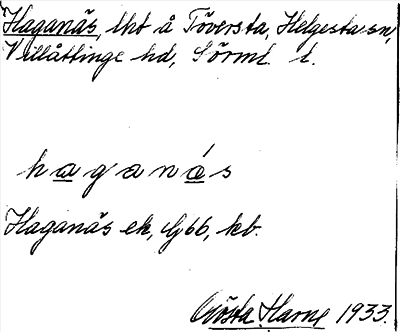 Haganäs, lht å Töversta, Helgesta sn,
Villåttinge hd, Sörml. l.
h a g a n á s
Haganäs ek, G 66, kb.
Gösta Harne 1933.